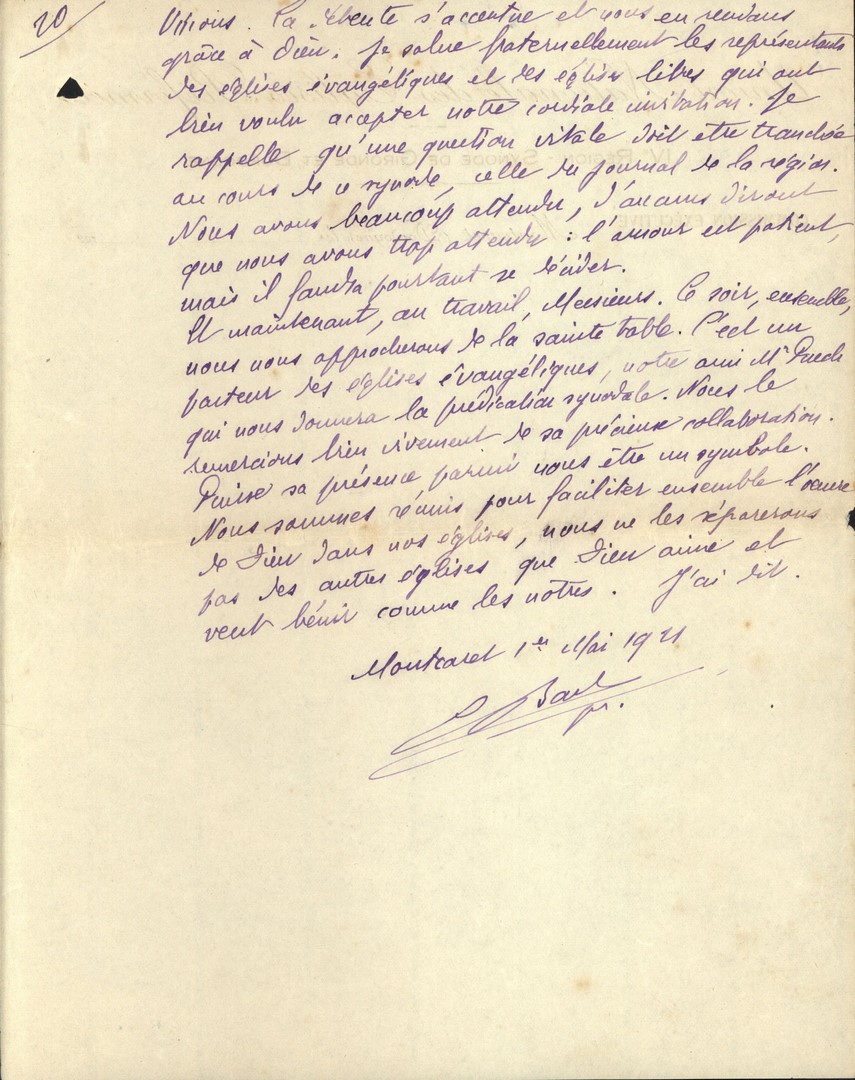 20
Unions. La détente s'accentue et nous en rendons
grâce à Dieu. Je salue fraternellement les représentants
des églises évangéliques et des églises libres qui ont
bien voulu accepter notre cordiale invitation. Je
rappelle qu'une question vitale doit être tranchée
au cours de ce synode, celle du journal de la région.
Nous avons beaucoup attendu, d'aucuns diront
que nous avons trop attendu : l'amour est patient,
mais il faudra pourtant se décider.
Et maintenant, au travail, Messieurs. Ce soir, ensemble,
nous nous approcherons de la sainte table. C'est un
pasteur des églises évangéliques, notre ami Mr
qui nous donnera la prédication synodale. Nous le
remercions bien vivement de sa précieuse collaboration.
Puisse sa présence parmi nous être un symbole.
Nous sommes réunis pour faciliter ensemble l'oeuvre
de Dieu dans nos églises, nous ne les séparerons
pas des autres églises que Dieu aime et
veut bénir comme les notres. J'ai dit.
Montcaret 1er Mai 1921
pr.